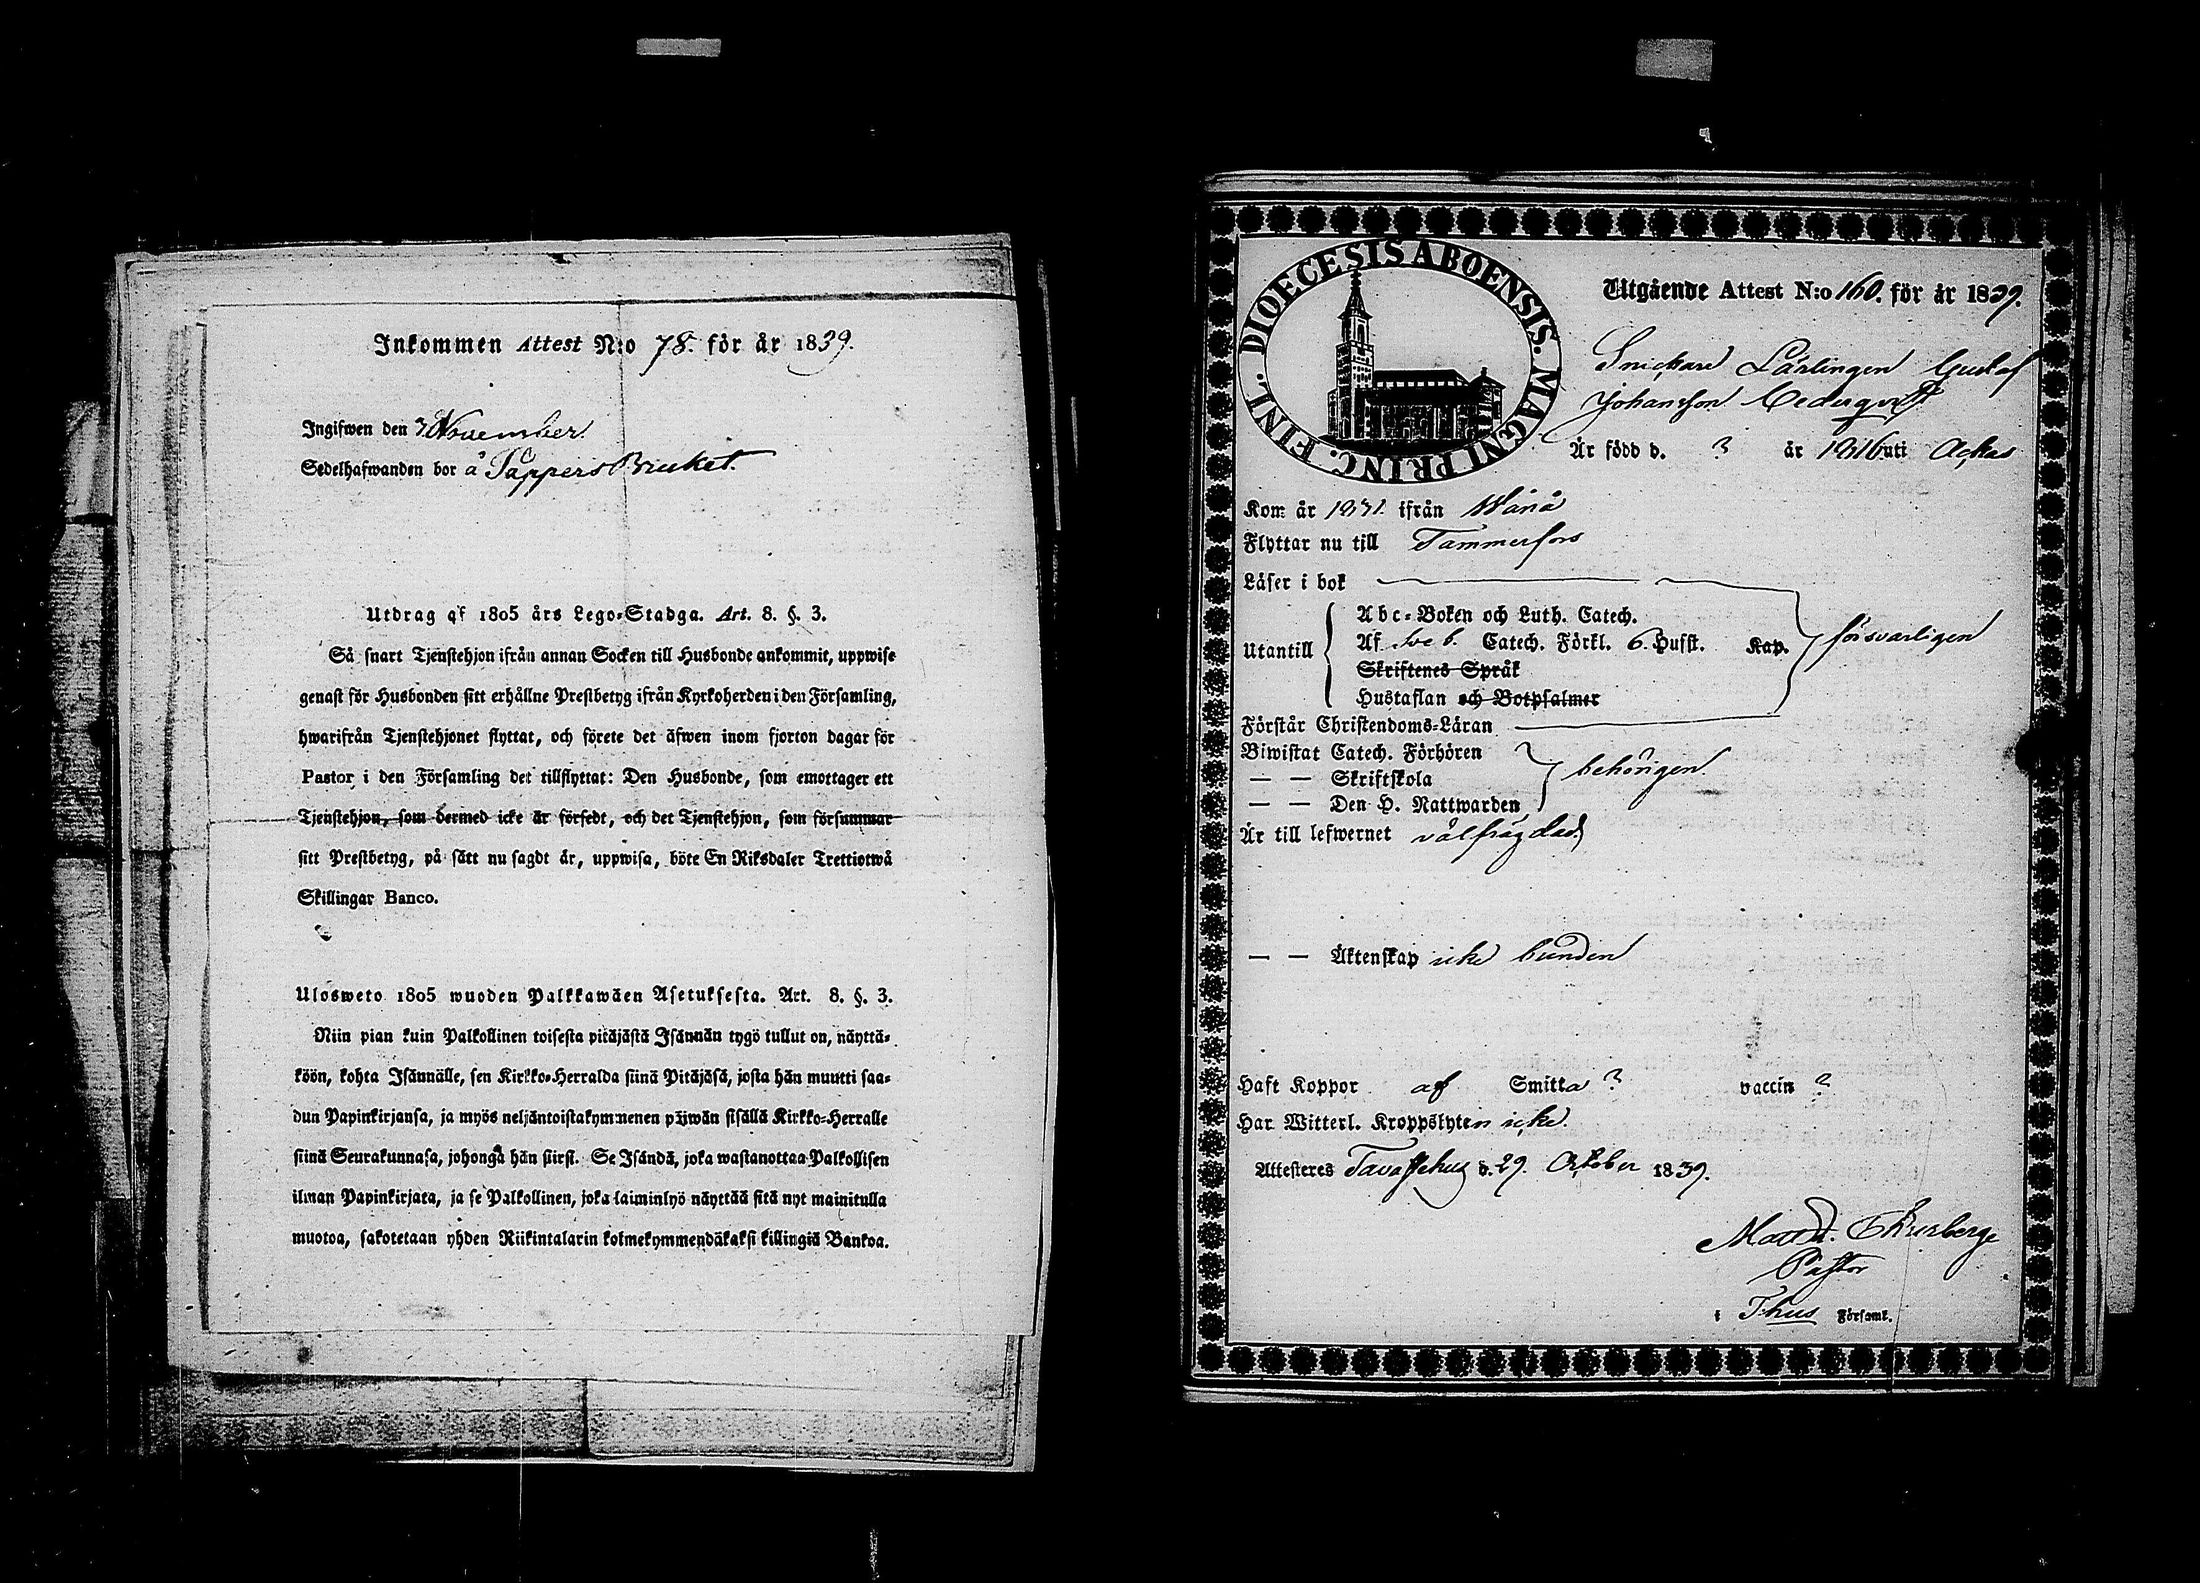 Inkommen Attest N:o 78. för år 1839.
Ingifwen den 3 November.
Sedelhafwanden bor å Tappers Bruket.
Utdrag af 1805 års Lego-Stadga. Art. 8. §. 3.
Så snart Tjenstehjon ifrån annan Socken till Husbonde ankommit, uppwise
genast för Husbonden sitt erhållne Prestbetyg ifrån Kyrkoherden i den Församling,
hwarifrån Tjenstehjonet flyttat, och förete det äfwen inom fjorton dagar för
Pastor i den Församling det tillflyttat: Den Husbonde, som emottager ett
Tjenstehjon, som dermed icke är försedt, och det Tjenstehjon, som försummar
sitt Prestbetyg, på sätt nu sagdt är, uppwisa, böte En Riksdaler Trettiotwå
Skillingar Banco.
Ulosweto 1805 wuoden Palkkawäen Asetuksesta. Art. 8. §. 3.
Niin pian kuin Palkollinen toisesta pitäjästä Isännän tygö tullut on, näyttä-
köön, kohta Isännälle, sen Kirkko-Herralda siinä Pitäjäsä, josta hän muutti saa-
dun Papinkirjansa, ja myös neljäntoistakymmenen päiwän sisällä Kirkko-Herralle
siinä Seurakunnasa, johonga hän siirsi. Se Isändä, joka wastanottaa Palkollisen
ilman Papinkirjata, ja se Palkollinen, joka laiminlyö näyttää sitä nyt mainitulla
muotoa, sakotetaan yhden Riikintalarin kolmekymmendäkaksi killingiä Bankoa.
DIOECESIS ABOENSIS. MAGNI PRINC. FINL.
Utgående Attest N:o 160. för år 1839.
Snickare Lärlingen Gustaf
Johansson Cederqvist
Är född d. ? år 1816 uti Ackas
Kom år 1831 ifrån Wånå
Flyttar nu till Tammerfors
Läser i bok
Utantill
Abc-Boken och Luth. Catech.
Af Sveb. Catech. Förkl. 6. Hufst. Kap.
Skriftenes Språk
Hustaflan och Botpsalmer
försvarligen
Förstår Christendoms-Läran
Biwistat Catech. Förhören
— — Skriftskola
behörigen.
— — Den H. Nattwarden
Är till lefwernet välfrägdad
— — Äktenskap icke bunden
Haft Koppor af Smitta ? vaccin ?
Har Witterl. Kroppslyten icke.
Attesteres Tavastehus d. 29. October 1839.
Pastor
i Thus Församl.